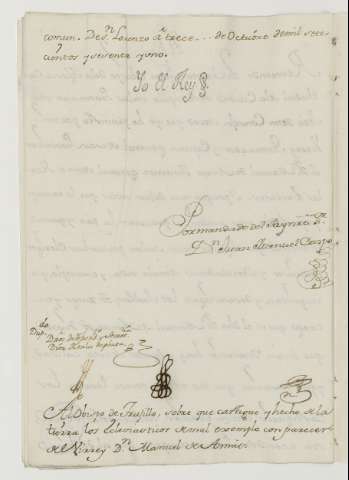 comun. De Sn Lorenzo à trece... de Octubre de mil sete-
cientos y sesenta y uno.
Yo el Rey
Por mandado del Rey nro Sr
Dn Juan Manuel Crespo
Dupdo
Al Obispo de Trujillo, sobre que castigue y heche de la
tierra los Eclesiasticos de mal exemplo con parecer
del Virrey Dn Manuel de Amat.